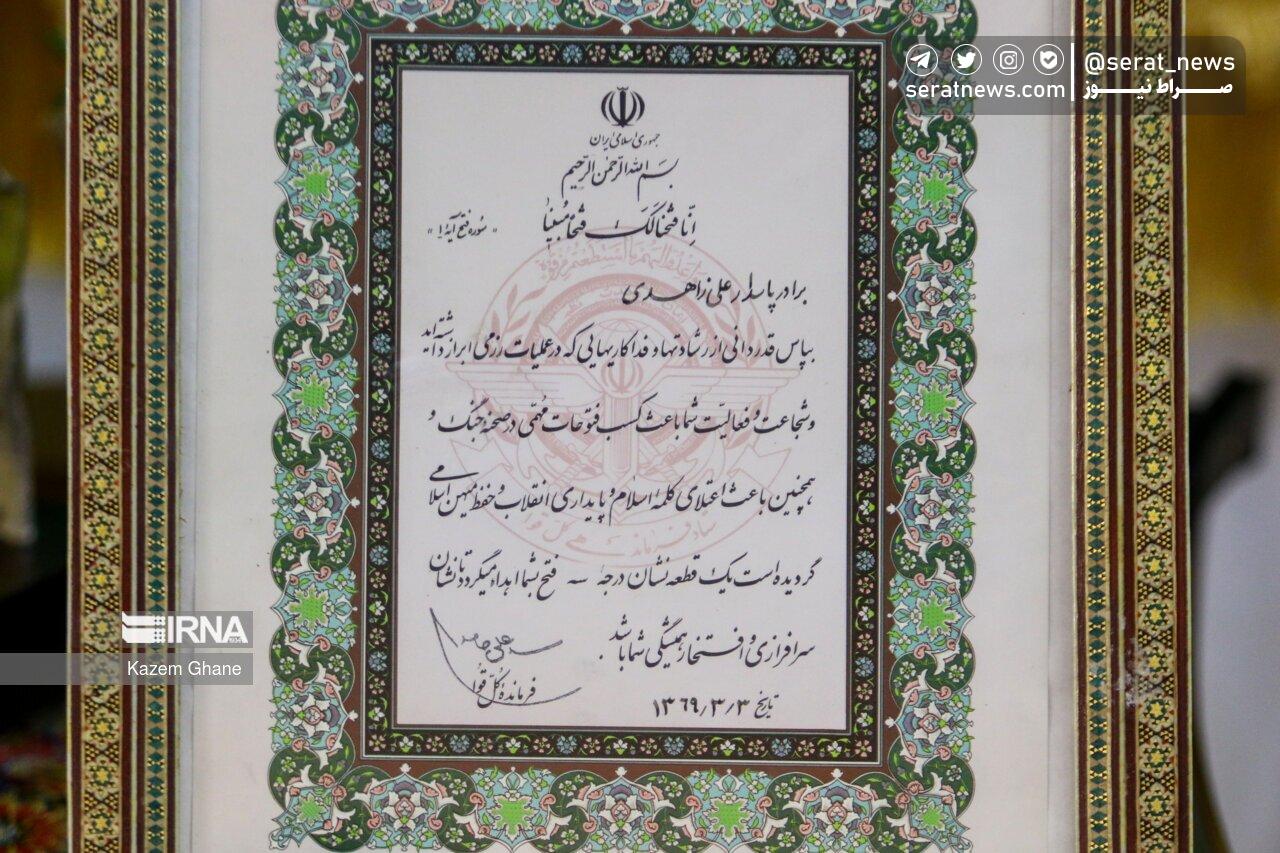 @serat_news
seratnews.com
صــراط نیــوز
جمهوری اسلامی ایران
بسم الله الرحمن الرحیم
اِنّا فَتَحْنا لَکَ فَتْحاً مُبیناً
«سوره فتح آیه ۱»
برادر پاسدار علی زاهدی
بپاس قدردانی از رشادتها و فداکاریهایی که در عملیات رزمی ابراز داشته‌اید
و شجاعت و فعالیت شما باعث کسب فتوحات مهمی در صحنه جنگ و
همچنین باعث اعتلای کلمه اسلام و پایداری انقلاب و حفظ میهن اسلامی
گردیده است یک قطعه نشان درجه سه فتح بشما اهداء میگردد تا نشان
سرافرازی و افتخار همیشگی شما باشد
فرمانده کل قوا
تاریخ ۱۳۶۹/۳/۳
IRNA
Kazem Ghane